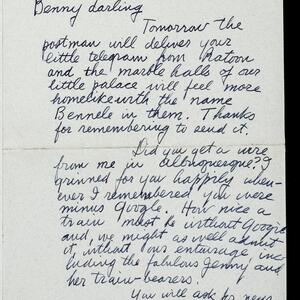 Benny darling
Tomorrow the
postman will deliver your
little telegram from Ratoon
and the marble halls of our
little palace will feel more
homelike with the name
Bennele in them. Thanks
for remembering to send it.
Did you get a wire
from me in Albuquerque? I
grinned for you happily when-
ever I remembered you were
minus Google. How nice a
train must be without Googie
and, we might as well admit
it, without our entourage, inc-
luding the fabulous Jenny and
her train-bearers.
You will ask for news